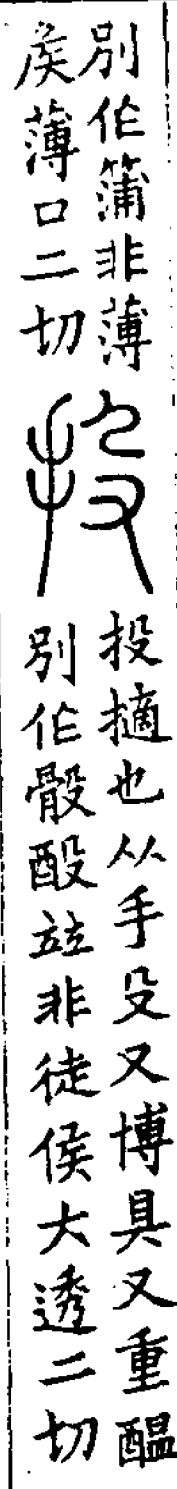 別作非薄
矦薄口二切
投
投擿也从手殳又博具又重醖
別作骰酘竝非徒侯大透二切